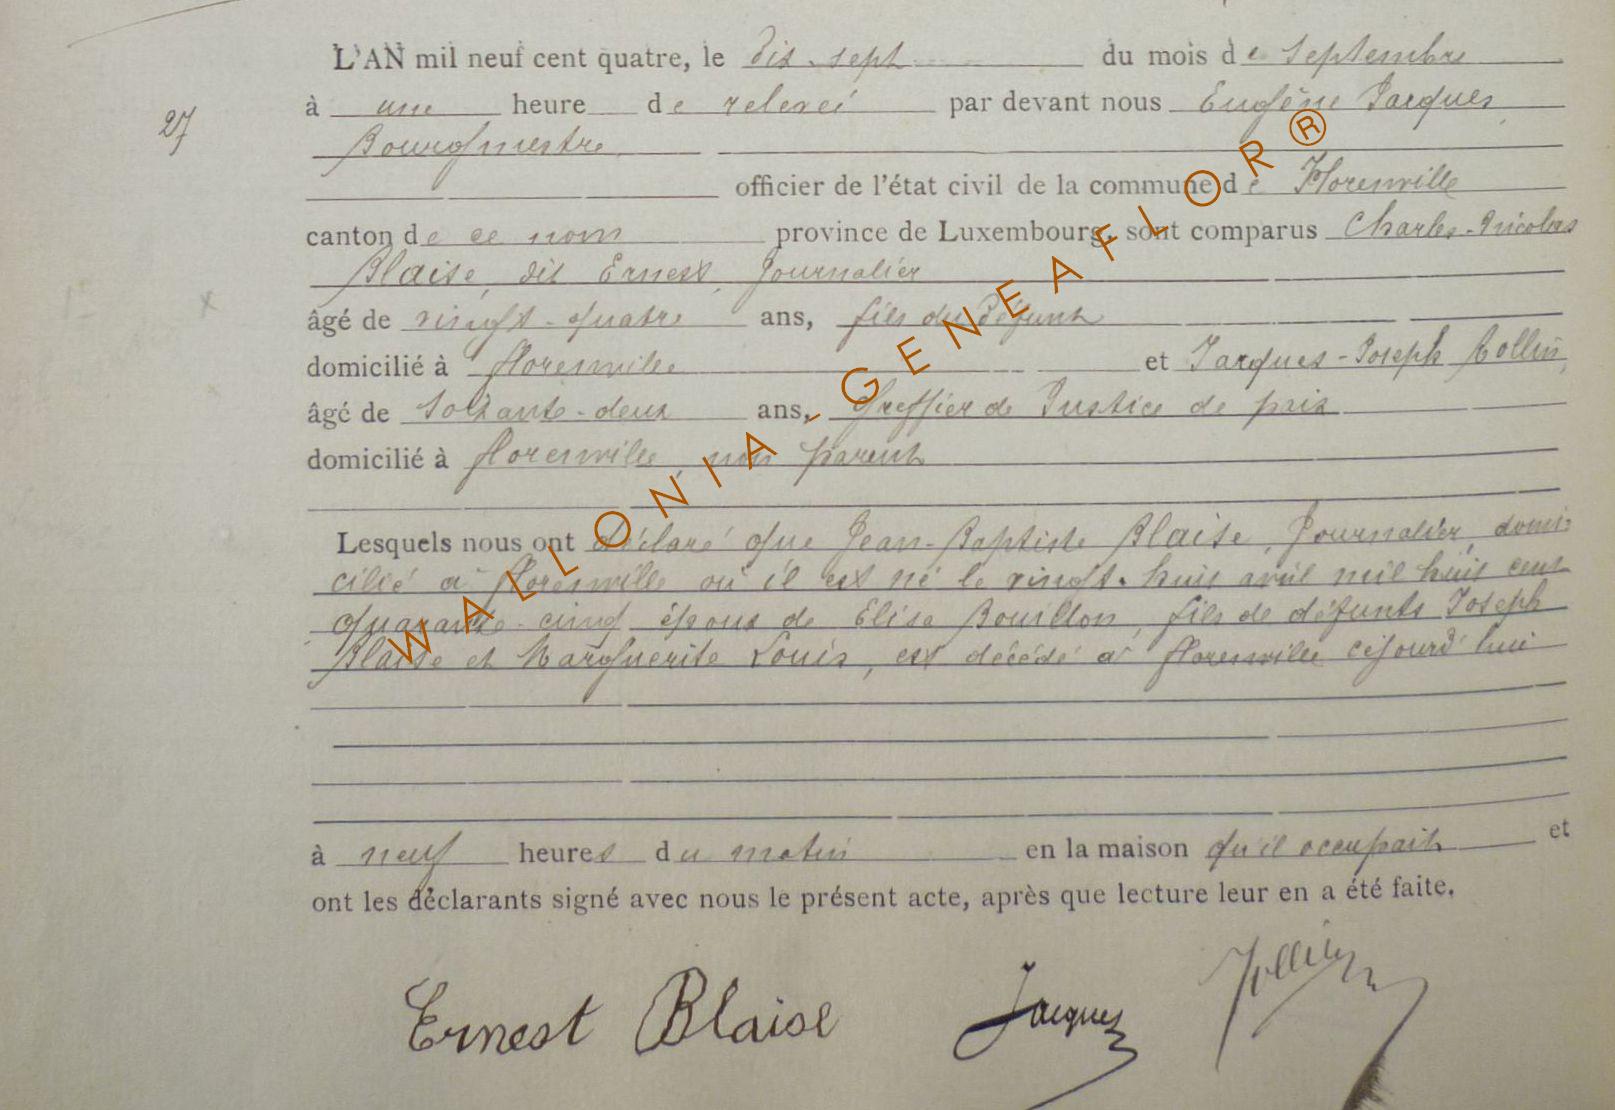 L'AN mil neuf cent quatre, le dix-sept du mois de Septembre
27
à une heure de relevée par devant nous Eugène Jacques,
Bourgmestre
officier de l'état civil de la commune de Florenville
canton de ce nom province de Luxembourg, sont comparus Charles-Nicolas
Blaise, dit Ernest, Journalier
âgé de vingt-quatre ans, fils du défunt
domicilié à florenville et Jacques-Joseph Collin,
âgé de soixante-deux ans, Greffier de Justice de paix
domicilié à florenville, non parent
Lesquels nous ont déclaré que Jean-Baptiste Blaise, Journalier, domi-
cilié à florenville où il est né le vingt-huit avril mil huit cent
quarante-cinq époux de Elise Bouillon, fils de défunts Joseph
Blaise et Marguerite Louis, est décédé à florenville cejourd'hui
à neuf heures du matin en la maison qu'il occupait et
ont les déclarants signé avec nous le présent acte, après que lecture leur en a été faite.
Ernest Blaise Jacques Collin
WALLONIA-GENEAFLOR®